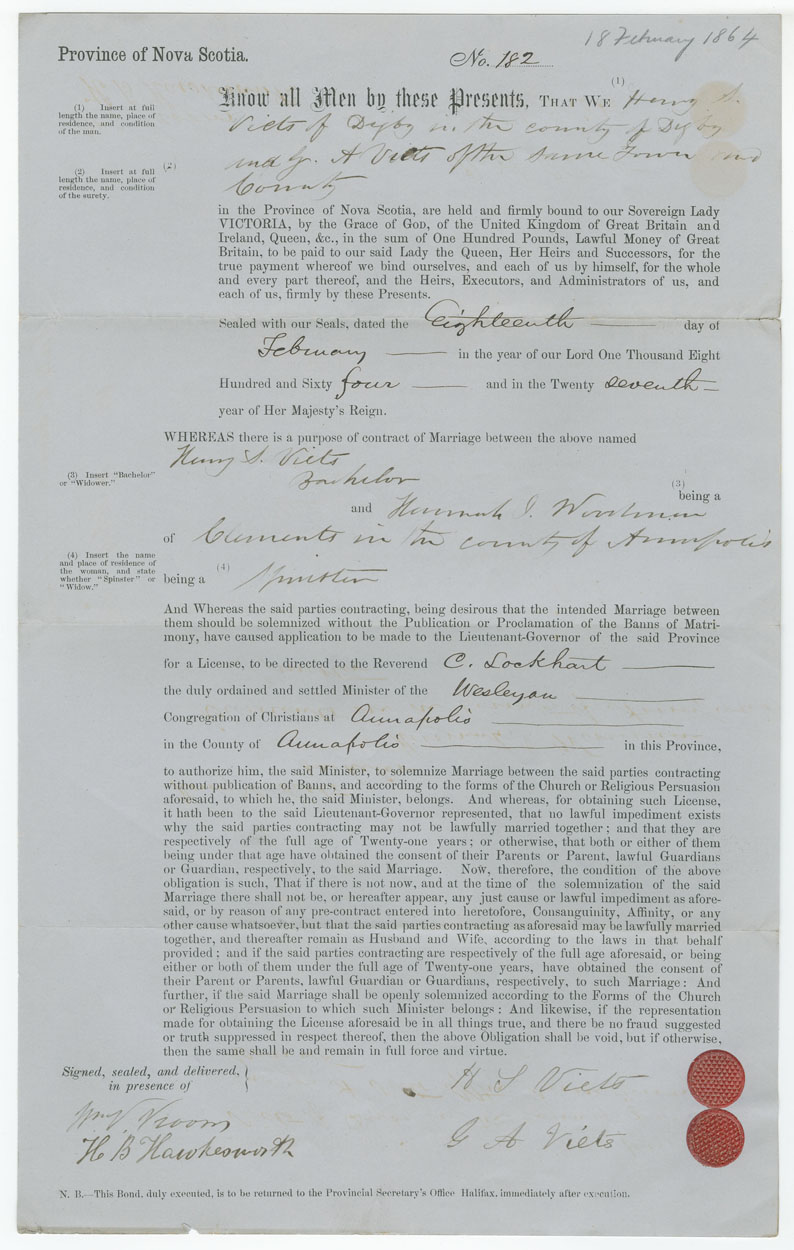 18 February 1864
Province of Nova Scotia.
No. 182
(1)
Know all Men by these Presents, THAT WE Henry S.
Viets of Digby in the county of Digby
and G. A Viets of the same Town and
County
(1) Insert at full
length the name, place of
residence, and condition
of the man.
(2)
(2) Insert at full
length the name, place of
residence, and condition
of the surety.
in the Province of Nova Scotia, are held and firmly bound to our Sovereign Lady
VICTORIA, by the Grace of GOD, of the United Kingdom of Great Britain and
Ireland, Queen, &c., in the sum of One Hundred Pounds, Lawful Money of Great
Britain, to be paid to our said Lady the Queen, Her Heirs and Successors, for the
true payment whereof we bind ourselves, and each of us by himself, for the whole
and every part thereof, and the Heirs, Executors, and Administrators of us, and
each of us, firmly by these Presents.
Sealed with our Seals, dated the Eighteenth day of
February in the year of our Lord One Thousand Eight
Hundred and Sixty four and in the Twenty seventh
year of Her Majesty's Reign.
WHEREAS there is a purpose of contract of Marriage between the above named
Henry S. Viets
(3) Insert "Bachelor"
or "Widower."
(3)
being a
Bachelor
and Hannah J. Woodman
of Clements in the county of Annapolis
(4) Insert the name
and place of residence of
the woman, and state
whether "Spinster" or
"Widow."
(4)
being a Spinster
And Whereas the said parties contracting, being desirous that the intended Marriage between
them should be solemnized without the Publication or Proclamation of the Banns of Matri-
mony, have caused application to be made to the Lieutenant-Governor of the said Province
for a License, to be directed to the Reverend C. Lockhart
the duly ordained and settled Minister of the Wesleyan
Congregation of Christians at Annapolis
in the County of Annapolis in this Province,
to authorize him, the said Minister, to solemnize Marriage between the said parties contracting
without publication of Banns, and according to the forms of the Church or Religious Persuasion
aforesaid, to which he, the said Minister, belongs. And whereas, for obtaining such License,
it hath been to the said Lieutenant-Governor represented, that no lawful impediment exists
why the said parties contracting may not be lawfully married together; and that they are
respectively of the full age of Twenty-one years; or otherwise, that both or either of them
being under that age have obtained the consent of their Parents or Parent, lawful Guardians
or Guardian, respectively, to the said Marriage. Now, therefore, the condition of the above
obligation is such, That if there is not now, and at the time of the solemnization of the said
Marriage there shall not be, or hereafter appear, any just cause or lawful impediment as afore-
said, or by reason of any pre-contract entered into heretofore, Consanguinity, Affinity, or any
other cause whatsoever, but that the said parties contracting as aforesaid may be lawfully married
together, and thereafter remain as Husband and Wife, according to the laws in that behalf
provided; and if the said parties contracting are respectively of the full age aforesaid, or being
either or both of them under the full age of Twenty-one years, have obtained the consent of
their Parent or Parents, lawful Guardian or Guardians, respectively, to such Marriage: And
further, if the said Marriage shall be openly solemnized according to the Forms of the Church
or Religious Persuasion to which such Minister belongs: And likewise, if the representation
made for obtaining the License aforesaid be in all things true, and there be no fraud suggested
or truth suppressed in respect thereof, then the above Obligation shall be void, but if otherwise,
then the same shall be and remain in full force and virtue.
Signed, sealed, and delivered,
in presence of
H S Viets
Wm V. Vroom
H B Hawkesworth
G A Viets
N. B.—This Bond, duly executed, is to be returned to the Provincial Secretary's Office Halifax, immediately after execution.